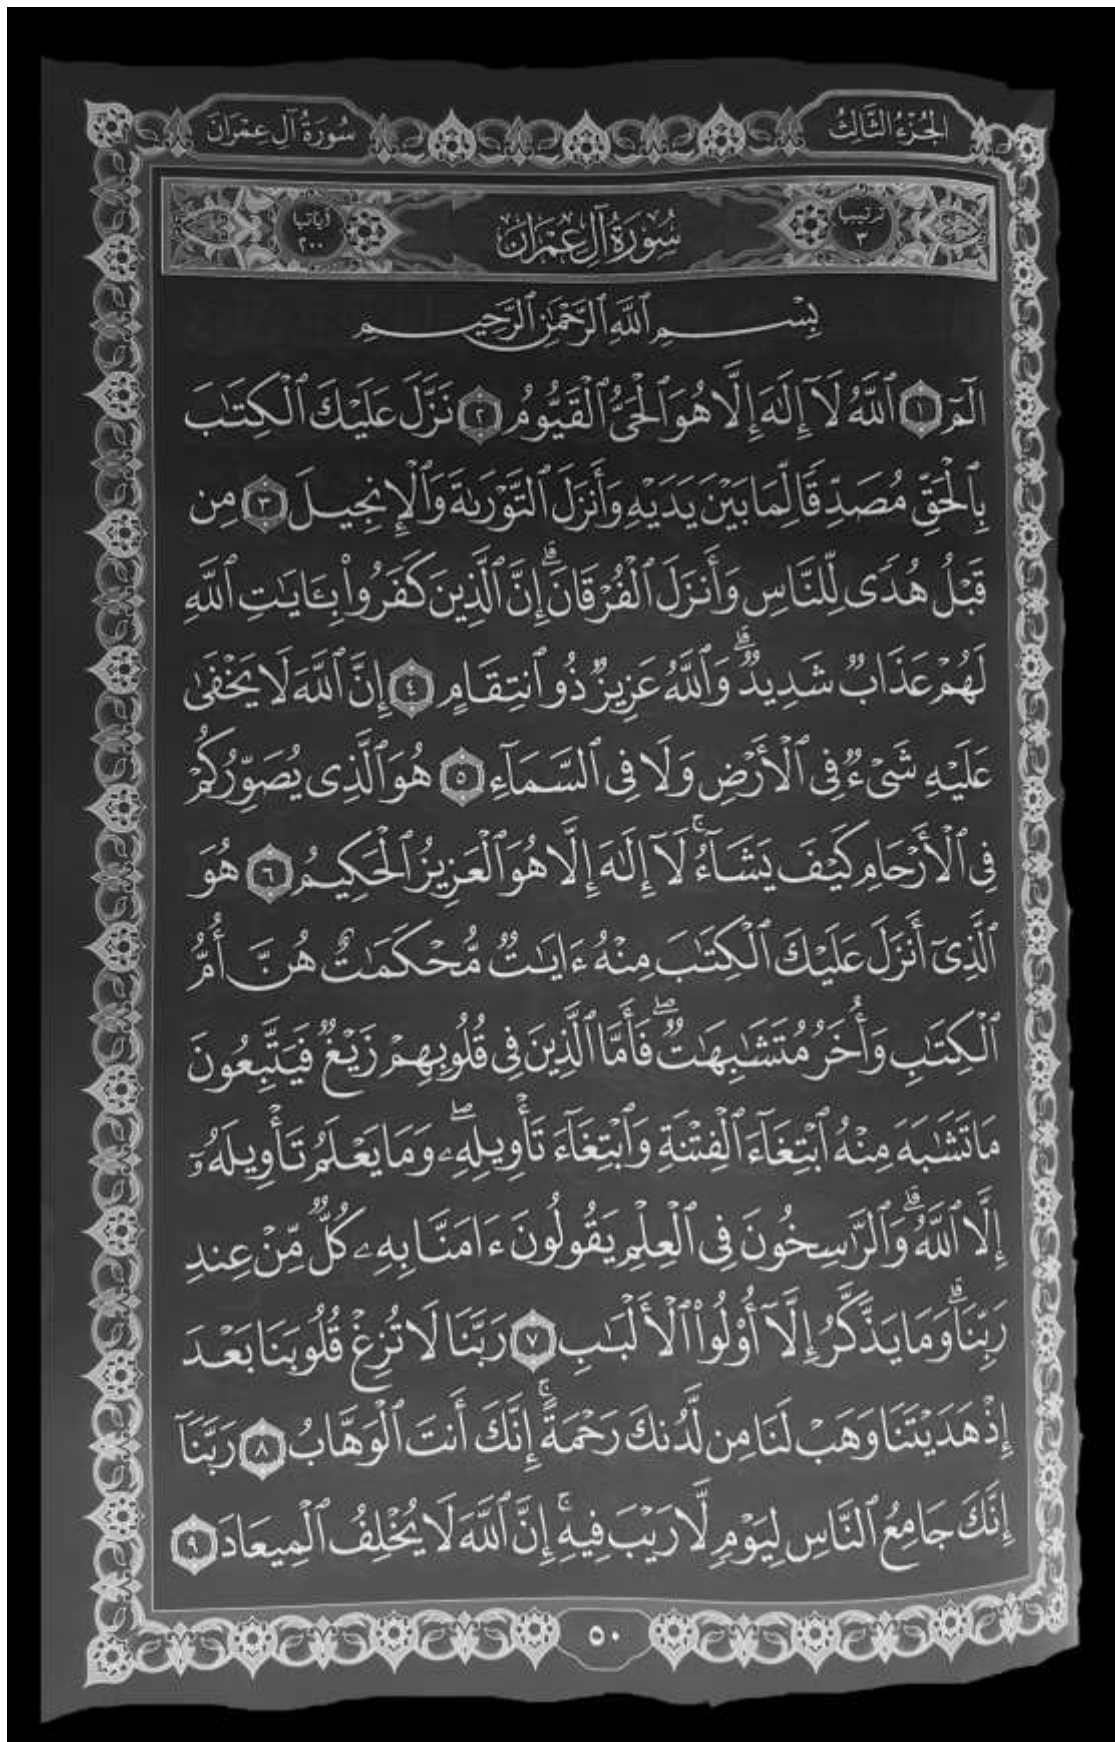 الجُزْءُ الثَّالِثُ
سُورَةُ آلِ عِمْرَانَ
ترتيبها
٣
سُورَةُ آلِ عِمْرَانَ
آياتها
٢٠٠
بِسْمِ ٱللَّهِ ٱلرَّحْمَٰنِ ٱلرَّحِيمِ
الٓمٓ ١ ٱللَّهُ لَآ إِلَٰهَ إِلَّا هُوَ ٱلْحَىُّ ٱلْقَيُّومُ ٢ نَزَّلَ عَلَيْكَ ٱلْكِتَٰبَ
بِٱلْحَقِّ مُصَدِّقًا لِّمَا بَيْنَ يَدَيْهِ وَأَنزَلَ ٱلتَّوْرَىٰةَ وَٱلْإِنجِيلَ ٣ مِن
قَبْلُ هُدًى لِّلنَّاسِ وَأَنزَلَ ٱلْفُرْقَانَ ۗ إِنَّ ٱلَّذِينَ كَفَرُوا۟ بِـَٔايَٰتِ ٱللَّهِ
لَهُمْ عَذَابٌ شَدِيدٌ ۗ وَٱللَّهُ عَزِيزٌ ذُو ٱنتِقَامٍ ٤ إِنَّ ٱللَّهَ لَا يَخْفَىٰ
عَلَيْهِ شَىْءٌ فِى ٱلْأَرْضِ وَلَا فِى ٱلسَّمَآءِ ٥ هُوَ ٱلَّذِى يُصَوِّرُكُمْ
فِى ٱلْأَرْحَامِ كَيْفَ يَشَآءُ ۚ لَآ إِلَٰهَ إِلَّا هُوَ ٱلْعَزِيزُ ٱلْحَكِيمُ ٦ هُوَ
ٱلَّذِىٓ أَنزَلَ عَلَيْكَ ٱلْكِتَٰبَ مِنْهُ ءَايَٰتٌ مُّحْكَمَٰتٌ هُنَّ أُمُّ
ٱلْكِتَٰبِ وَأُخَرُ مُتَشَٰبِهَٰتٌ ۖ فَأَمَّا ٱلَّذِينَ فِى قُلُوبِهِمْ زَيْغٌ فَيَتَّبِعُونَ
مَا تَشَٰبَهَ مِنْهُ ٱبْتِغَآءَ ٱلْفِتْنَةِ وَٱبْتِغَآءَ تَأْوِيلِهِۦ ۖ وَمَا يَعْلَمُ تَأْوِيلَهُۥٓ
إِلَّا ٱللَّهُ ۗ وَٱلرَّٰسِخُونَ فِى ٱلْعِلْمِ يَقُولُونَ ءَامَنَّا بِهِۦ كُلٌّ مِّنْ عِندِ
رَبِّنَا ۗ وَمَا يَذَّكَّرُ إِلَّآ أُو۟لُوا۟ ٱلْأَلْبَٰبِ ٧ رَبَّنَا لَا تُزِغْ قُلُوبَنَا بَعْدَ
إِذْ هَدَيْتَنَا وَهَبْ لَنَا مِن لَّدُنكَ رَحْمَةً ۚ إِنَّكَ أَنتَ ٱلْوَهَّابُ ٨ رَبَّنَآ
إِنَّكَ جَامِعُ ٱلنَّاسِ لِيَوْمٍ لَّا رَيْبَ فِيهِ ۚ إِنَّ ٱللَّهَ لَا يُخْلِفُ ٱلْمِيعَادَ ٩
٥٠